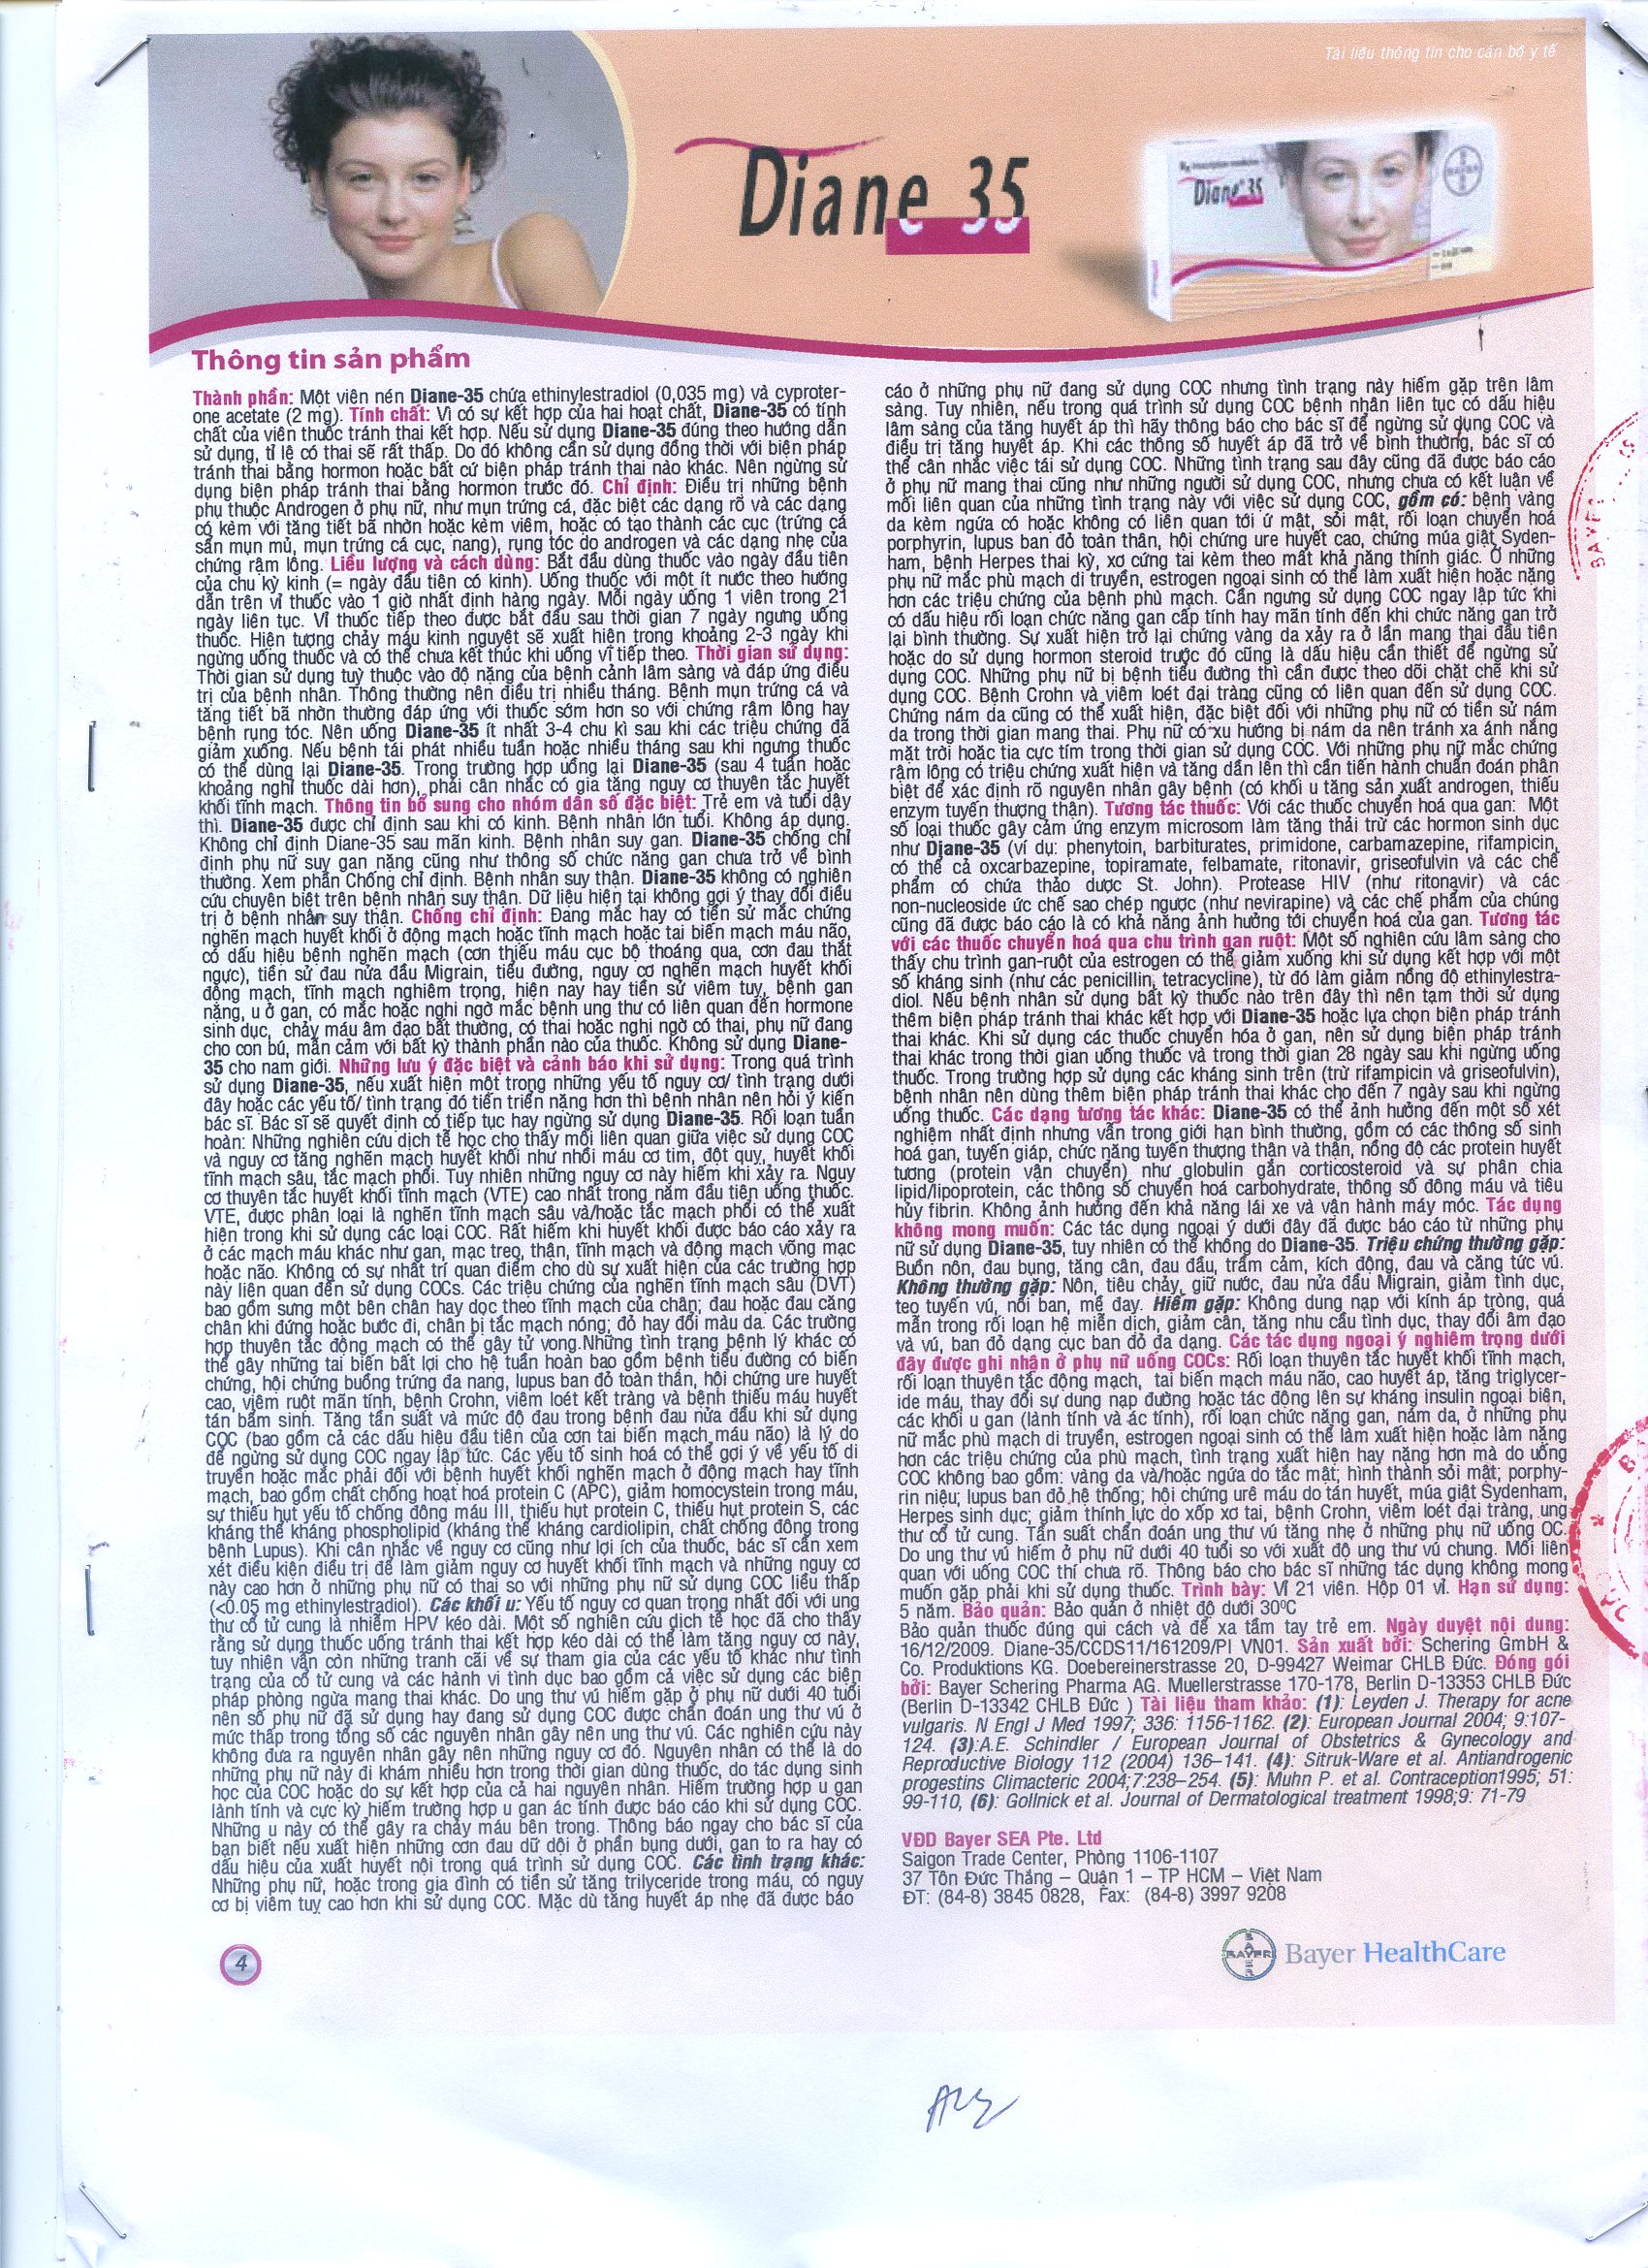 Tài liệu thông tin cho cán bộ y tế
Diane 35
Diane 35
BAYER
Thông tin sản phẩm
Thành phần: Một viên nén Diane-35 chứa ethinylestradiol (0,035 mg) và cyproter-
one acetate (2 mg). Tính chất: Vì có sự kết hợp của hai hoạt chất, Diane-35 có tính
chất của viên thuốc tránh thai kết hợp. Nếu sử dụng Diane-35 đúng theo hướng dẫn
sử dụng, tỉ lệ có thai sẽ rất thấp. Do đó không cần sử dụng đồng thời với biện pháp
tránh thai bằng hormon hoặc bất cứ biện pháp tránh thai nào khác. Nên ngừng sử
dụng biện pháp tránh thai bằng hormon trước đó. Chỉ định: Điều trị những bệnh
phụ thuộc Androgen ở phụ nữ, như mụn trứng cá, đặc biệt các dạng rõ và các dạng
có kèm với tăng tiết bã nhờn hoặc kèm viêm, hoặc có tạo thành các cục (trứng cá
sần mụn mủ, mụn trứng cá cục, nang), rụng tóc do androgen và các dạng nhẹ của
chứng rậm lông. Liều lượng và cách dùng: Bắt đầu dùng thuốc vào ngày đầu tiên
của chu kỳ kinh (= ngày đầu tiên có kinh). Uống thuốc với một ít nước theo hướng
dẫn trên vỉ thuốc vào 1 giờ nhất định hàng ngày. Mỗi ngày uống 1 viên trong 21
ngày liên tục. Vỉ thuốc tiếp theo được bắt đầu sau thời gian 7 ngày ngưng uống
thuốc. Hiện tượng chảy máu kinh nguyệt sẽ xuất hiện trong khoảng 2-3 ngày khi
ngừng uống thuốc và có thể chưa kết thúc khi uống vỉ tiếp theo. Thời gian sử dụng:
Thời gian sử dụng tuỳ thuộc vào độ nặng của bệnh cảnh lâm sàng và đáp ứng điều
trị của bệnh nhân. Thông thường nên điều trị nhiều tháng. Bệnh mụn trứng cá và
tăng tiết bã nhờn thường đáp ứng với thuốc sớm hơn so với chứng rậm lông hay
bệnh rụng tóc. Nên uống Diane-35 ít nhất 3-4 chu kì sau khi các triệu chứng đã
giảm xuống. Nếu bệnh tái phát nhiều tuần hoặc nhiều tháng sau khi ngưng thuốc
có thể dùng lại Diane-35. Trong trường hợp uống lại Diane-35 (sau 4 tuần hoặc
khoảng nghỉ thuốc dài hơn), phải cân nhắc có gia tăng nguy cơ thuyên tắc huyết
khối tĩnh mạch. Thông tin bổ sung cho nhóm dân số đặc biệt: Trẻ em và tuổi dậy
thì. Diane-35 được chỉ định sau khi có kinh. Bệnh nhân lớn tuổi. Không áp dụng.
Không chỉ định Diane-35 sau mãn kinh. Bệnh nhân suy gan. Diane-35 chống chỉ
định phụ nữ suy gan nặng cũng như thông số chức năng gan chưa trở về bình
thường. Xem phần Chống chỉ định. Bệnh nhân suy thận. Diane-35 không có nghiên
cứu chuyên biệt trên bệnh nhân suy thận. Dữ liệu hiện tại không gợi ý thay đổi điều
trị ở bệnh nhân suy thận. Chống chỉ định: Đang mắc hay có tiền sử mắc chứng
nghẽn mạch huyết khối ở động mạch hoặc tĩnh mạch hoặc tai biến mạch máu não,
có dấu hiệu bệnh nghẽn mạch (cơn thiếu máu cục bộ thoáng qua, cơn đau thắt
ngực), tiền sử đau nửa đầu Migrain, tiểu đường, nguy cơ nghẽn mạch huyết khối
động mạch, tĩnh mạch nghiêm trọng, hiện nay hay tiền sử viêm tuỵ, bệnh gan
nặng, u ở gan, có mắc hoặc nghi ngờ mắc bệnh ung thư có liên quan đến hormone
sinh dục, chảy máu âm đạo bất thường, có thai hoặc nghi ngờ có thai, phụ nữ đang
cho con bú, mẫn cảm với bất kỳ thành phần nào của thuốc. Không sử dụng Diane-
35 cho nam giới. Những lưu ý đặc biệt và cảnh báo khi sử dụng: Trong quá trình
sử dụng Diane-35, nếu xuất hiện một trong những yếu tố nguy cơ/ tình trạng dưới
đây hoặc các yếu tố/ tình trạng đó tiến triển nặng hơn thì bệnh nhân nên hỏi ý kiến
bác sĩ. Bác sĩ sẽ quyết định có tiếp tục hay ngừng sử dụng Diane-35. Rối loạn tuần
hoàn: Những nghiên cứu dịch tễ học cho thấy mối liên quan giữa việc sử dụng COC
và nguy cơ tăng nghẽn mạch huyết khối như nhồi máu cơ tim, đột quỵ, huyết khối
tĩnh mạch sâu, tắc mạch phổi. Tuy nhiên những nguy cơ này hiếm khi xảy ra. Nguy
cơ thuyên tắc huyết khối tĩnh mạch (VTE) cao nhất trong năm đầu tiên uống thuốc.
VTE, được phân loại là nghẽn tĩnh mạch sâu và/hoặc tắc mạch phổi có thể xuất
hiện trong khi sử dụng các loại COC. Rất hiếm khi huyết khối được báo cáo xảy ra
ở các mạch máu khác như gan, mạc treo, thận, tĩnh mạch và động mạch võng mạc
hoặc não. Không có sự nhất trí quan điểm cho dù sự xuất hiện của các trường hợp
này liên quan đến sử dụng COCs. Các triệu chứng của nghẽn tĩnh mạch sâu (DVT)
bao gồm sưng một bên chân hay dọc theo tĩnh mạch của chân; đau hoặc đau căng
chân khi đứng hoặc bước đi, chân bị tắc mạch nóng; đỏ hay đổi màu da. Các trường
hợp thuyên tắc động mạch có thể gây tử vong.Những tình trạng bệnh lý khác có
thể gây những tai biến bất lợi cho hệ tuần hoàn bao gồm bệnh tiểu đường có biến
chứng, hội chứng buồng trứng đa nang, lupus ban đỏ toàn thân, hội chứng ure huyết
cao, viêm ruột mãn tính, bệnh Crohn, viêm loét kết tràng và bệnh thiếu máu huyết
tán bẩm sinh. Tăng tần suất và mức độ đau trong bệnh đau nửa đầu khi sử dụng
COC (bao gồm cả các dấu hiệu đầu tiên của cơn tai biến mạch máu não) là lý do
để ngừng sử dụng COC ngay lập tức. Các yếu tố sinh hoá có thể gợi ý về yếu tố di
truyền hoặc mắc phải đối với bệnh huyết khối nghẽn mạch ở động mạch hay tĩnh
mạch, bao gồm chất chống hoạt hoá protein C (APC), giảm homocystein trong máu,
sự thiếu hụt yếu tố chống đông máu III, thiếu hụt protein C, thiếu hụt protein S, các
kháng thể kháng phospholipid (kháng thể kháng cardiolipin, chất chống đông trong
bệnh Lupus). Khi cân nhắc về nguy cơ cũng như lợi ích của thuốc, bác sĩ cần xem
xét điều kiện điều trị để làm giảm nguy cơ huyết khối tĩnh mạch và những nguy cơ
này cao hơn ở những phụ nữ có thai so với những phụ nữ sử dụng COC liều thấp
(<0.05 mg ethinylestradiol). Các khối u: Yếu tố nguy cơ quan trọng nhất đối với ung
thư cổ tử cung là nhiễm HPV kéo dài. Một số nghiên cứu dịch tễ học đã cho thấy
rằng sử dụng thuốc uống tránh thai kết hợp kéo dài có thể làm tăng nguy cơ này,
tuy nhiên vẫn còn những tranh cãi về sự tham gia của các yếu tố khác như tình
trạng của cổ tử cung và các hành vi tình dục bao gồm cả việc sử dụng các biện
pháp phòng ngừa mang thai khác. Do ung thư vú hiếm gặp ở phụ nữ dưới 40 tuổi
nên số phụ nữ đã sử dụng hay đang sử dụng COC được chẩn đoán ung thư vú ở
mức thấp trong tổng số các nguyên nhân gây nên ung thư vú. Các nghiên cứu này
không đưa ra nguyên nhân gây nên những nguy cơ đó. Nguyên nhân có thể là do
những phụ nữ này đi khám nhiều hơn trong thời gian dùng thuốc, do tác dụng sinh
học của COC hoặc do sự kết hợp của cả hai nguyên nhân. Hiếm trường hợp u gan
lành tính và cực kỳ hiếm trường hợp u gan ác tính được báo cáo khi sử dụng COC.
Những u này có thể gây ra chảy máu bên trong. Thông báo ngay cho bác sĩ của
bạn biết nếu xuất hiện những cơn đau dữ dội ở phần bụng dưới, gan to ra hay có
dấu hiệu của xuất huyết nội trong quá trình sử dụng COC. Các tình trạng khác:
Những phụ nữ, hoặc trong gia đình có tiền sử tăng trilyceride trong máu, có nguy
cơ bị viêm tuỵ cao hơn khi sử dụng COC. Mặc dù tăng huyết áp nhẹ đã được báo
cáo ở những phụ nữ đang sử dụng COC nhưng tình trạng này hiếm gặp trên lâm
sàng. Tuy nhiên, nếu trong quá trình sử dụng COC bệnh nhân liên tục có dấu hiệu
lâm sàng của tăng huyết áp thì hãy thông báo cho bác sĩ để ngừng sử dụng COC và
điều trị tăng huyết áp. Khi các thông số huyết áp đã trở về bình thường, bác sĩ có
thể cân nhắc việc tái sử dụng COC. Những tình trạng sau đây cũng đã được báo cáo
ở phụ nữ mang thai cũng như những người sử dụng COC, nhưng chưa có kết luận về
mối liên quan của những tình trạng này với việc sử dụng COC, gồm có: bệnh vàng
da kèm ngứa có hoặc không có liên quan tới ứ mật, sỏi mật, rối loạn chuyển hoá
porphyrin, lupus ban đỏ toàn thân, hội chứng ure huyết cao, chứng múa giật Syden-
ham, bệnh Herpes thai kỳ, xơ cứng tai kèm theo mất khả năng thính giác. Ở những
phụ nữ mắc phù mạch di truyền, estrogen ngoại sinh có thể làm xuất hiện hoặc nặng
hơn các triệu chứng của bệnh phù mạch. Cần ngưng sử dụng COC ngay lập tức khi
có dấu hiệu rối loạn chức năng gan cấp tính hay mãn tính đến khi chức năng gan trở
lại bình thường. Sự xuất hiện trở lại chứng vàng da xảy ra ở lần mang thai đầu tiên
hoặc do sử dụng hormon steroid trước đó cũng là dấu hiệu cần thiết để ngừng sử
dụng COC. Những phụ nữ bị bệnh tiểu đường thì cần được theo dõi chặt chẽ khi sử
dụng COC. Bệnh Crohn và viêm loét đại tràng cũng có liên quan đến sử dụng COC.
Chứng nám da cũng có thể xuất hiện, đặc biệt đối với những phụ nữ có tiền sử nám
da trong thời gian mang thai. Phụ nữ có xu hướng bị nám da nên tránh xa ánh nắng
mặt trời hoặc tia cực tím trong thời gian sử dụng COC. Với những phụ nữ mắc chứng
rậm lông có triệu chứng xuất hiện và tăng dần lên thì cần tiến hành chuẩn đoán phân
biệt để xác định rõ nguyên nhân gây bệnh (có khối u tăng sản xuất androgen, thiếu
enzym tuyến thượng thận). Tương tác thuốc: Với các thuốc chuyển hoá qua gan: Một
số loại thuốc gây cảm ứng enzym microsom làm tăng thải trừ các hormon sinh dục
như Diane-35 (ví dụ: phenytoin, barbiturates, primidone, carbamazepine, rifampicin,
có thể cả oxcarbazepine, topiramate, felbamate, ritonavir, griseofulvin và các chế
phẩm có chứa thảo dược St. John). Protease HIV (như ritonavir) và các
non-nucleoside ức chế sao chép ngược (như nevirapine) và các chế phẩm của chúng
cũng đã được báo cáo là có khả năng ảnh hưởng tới chuyển hoá của gan. Tương tác
với các thuốc chuyển hoá qua chu trình gan ruột: Một số nghiên cứu lâm sàng cho
thấy chu trình gan-ruột của estrogen có thể giảm xuống khi sử dụng kết hợp với một
số kháng sinh (như các penicillin, tetracycline), từ đó làm giảm nồng độ ethinylestra-
diol. Nếu bệnh nhân sử dụng bất kỳ thuốc nào trên đây thì nên tạm thời sử dụng
thêm biện pháp tránh thai khác kết hợp với Diane-35 hoặc lựa chọn biện pháp tránh
thai khác. Khi sử dụng các thuốc chuyển hóa ở gan, nên sử dụng biện pháp tránh
thai khác trong thời gian uống thuốc và trong thời gian 28 ngày sau khi ngừng uống
thuốc. Trong trường hợp sử dụng các kháng sinh trên (trừ rifampicin và griseofulvin),
bệnh nhân nên dùng thêm biện pháp tránh thai khác cho đến 7 ngày sau khi ngừng
uống thuốc. Các dạng tương tác khác: Diane-35 có thể ảnh hưởng đến một số xét
nghiệm nhất định nhưng vẫn trong giới hạn bình thường, gồm có các thông số sinh
hoá gan, tuyến giáp, chức năng tuyến thượng thận và thận, nồng độ các protein huyết
tương (protein vận chuyển) như globulin gắn corticosteroid và sự phân chia
lipid/lipoprotein, các thông số chuyển hoá carbohydrate, thông số đông máu và tiêu
hủy fibrin. Không ảnh hưởng đến khả năng lái xe và vận hành máy móc. Tác dụng
không mong muốn: Các tác dụng ngoại ý dưới đây đã được báo cáo từ những phụ
nữ sử dụng Diane-35, tuy nhiên có thể không do Diane-35. Triệu chứng thường gặp:
Buồn nôn, đau bụng, tăng cân, đau đầu, trầm cảm, kích động, đau và căng tức vú.
Không thường gặp: Nôn, tiêu chảy, giữ nước, đau nửa đầu Migrain, giảm tình dục,
teo tuyến vú, nổi ban, mề đay. Hiếm gặp: Không dung nạp với kính áp tròng, quá
mẫn trong rối loạn hệ miễn dịch, giảm cân, tăng nhu cầu tình dục, thay đổi âm đạo
và vú, ban đỏ dạng cục ban đỏ đa dạng. Các tác dụng ngoại ý nghiêm trọng dưới
đây được ghi nhận ở phụ nữ uống COCs: Rối loạn thuyên tắc huyết khối tĩnh mạch,
rối loạn thuyên tắc động mạch, tai biến mạch máu não, cao huyết áp, tăng triglycer-
ide máu, thay đổi sự dung nạp đường hoặc tác động lên sự kháng insulin ngoại biên,
các khối u gan (lành tính và ác tính), rối loạn chức năng gan, nám da, ở những phụ
nữ mắc phù mạch di truyền, estrogen ngoại sinh có thể làm xuất hiện hoặc làm nặng
hơn các triệu chứng của phù mạch, tình trạng xuất hiện hay nặng hơn mà do uống
COC không bao gồm: vàng da và/hoặc ngứa do tắc mật; hình thành sỏi mật; porphy-
rin niệu; lupus ban đỏ hệ thống; hội chứng urê máu do tán huyết, múa giật Sydenham,
Herpes sinh dục; giảm thính lực do xốp xơ tai, bệnh Crohn, viêm loét đại tràng, ung
thư cổ tử cung. Tần suất chẩn đoán ung thư vú tăng nhẹ ở những phụ nữ uống OC.
Do ung thư vú hiếm ở phụ nữ dưới 40 tuổi so với xuất độ ung thư vú chung. Mối liên
quan với uống COC thí chưa rõ. Thông báo cho bác sĩ những tác dụng không mong
muốn gặp phải khi sử dụng thuốc. Trình bày: Vỉ 21 viên. Hộp 01 vỉ. Hạn sử dụng:
5 năm. Bảo quản: Bảo quản ở nhiệt độ dưới 30ºC
Bảo quản thuốc đúng qui cách và để xa tầm tay trẻ em. Ngày duyệt nội dung:
16/12/2009. Diane-35/CCDS11/161209/PI VN01. Sản xuất bởi: Schering GmbH &
Co. Produktions KG. Doebereinerstrasse 20, D-99427 Weimar CHLB Đức. Đóng gói
bởi: Bayer Schering Pharma AG. Muellerstrasse 170-178, Berlin D-13353 CHLB Đức
(Berlin D-13342 CHLB Đức ) Tài liệu tham khảo: (1): Leyden J. Therapy for acne
vulgaris. N Engl J Med 1997; 336: 1156-1162. (2): European Journal 2004; 9:107-
124. (3):A.E. Schindler / European Journal of Obstetrics & Gynecology and
Reproductive Biology 112 (2004) 136–141. (4): Sitruk-Ware et al. Antiandrogenic
progestins Climacteric 2004;7:238–254. (5): Muhn P. et al. Contraception1995; 51:
99-110, (6): Gollnick et al. Journal of Dermatological treatment 1998;9: 71-79
VĐD Bayer SEA Pte. Ltd
Saigon Trade Center, Phòng 1106-1107
37 Tôn Đức Thắng – Quận 1 – TP HCM – Việt Nam
ĐT: (84-8) 3845 0828, Fax: (84-8) 3997 9208
4
BAYER
Bayer HealthCare